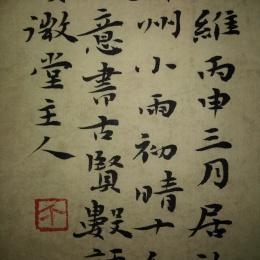 維丙申三月居
州小雨初晴十
意書古賢數
澂堂主人
不